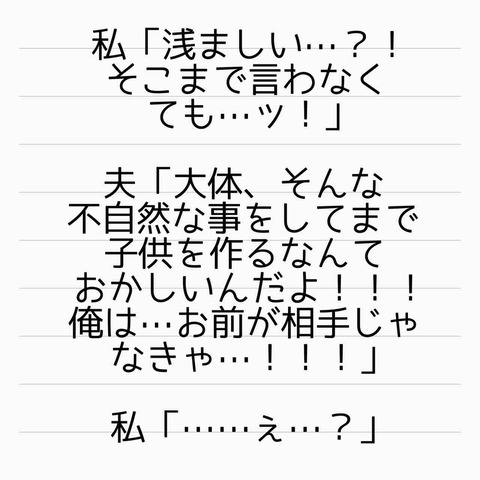 私「浅ましい…？！
そこまで言わなく
ても…ッ！」
夫「大体、そんな
不自然な事をしてまで
子供を作るなんて
おかしいんだよ！！！
俺は…お前が相手じゃ
なきゃ…！！！」
私「……ぇ…？」